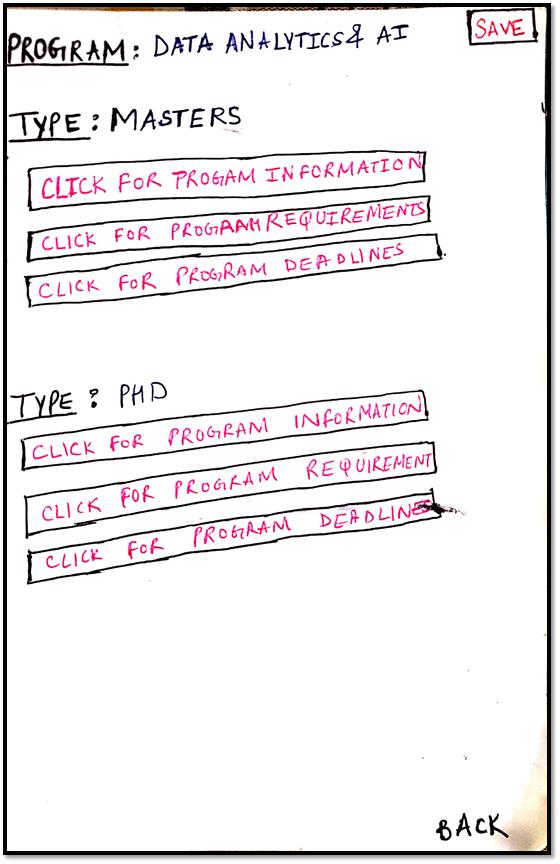 PROGRAM: DATA ANALYTICS & AI
SAVE
TYPE: MASTERS
CLICK FOR PROGAM INFORMATION
CLICK FOR PROGRAAM REQUIREMENTS
CLICK FOR PROGRAM DEADLINES
TYPE: PHD
CLICK FOR PROGRAM INFORMATION
CLICK FOR PROGRAM REQUIREMENT
CLICK FOR PROGRAM DEADLINES
BACK